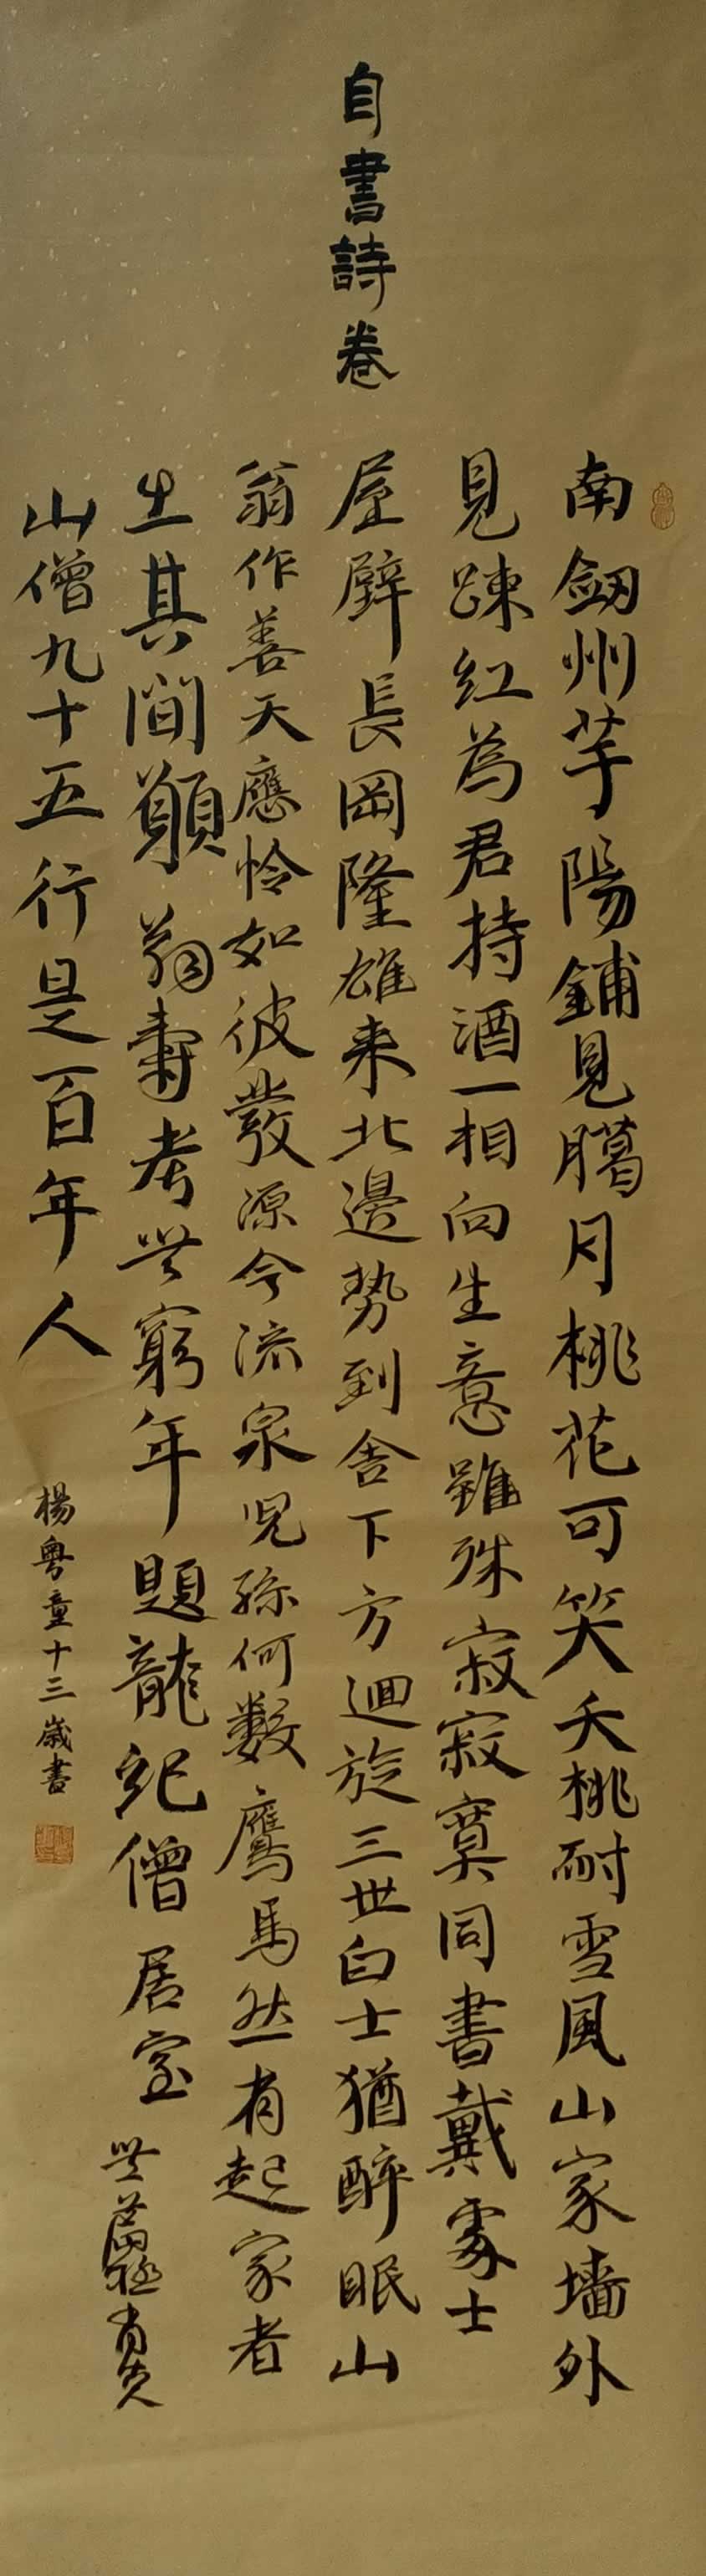 自書詩卷
南劒州芋陽鋪見臈月桃花可笑夭桃耐雪風山家墻外
見踈紅為君持酒一相向生意雖殊寂寂寞同書戴處士
屋壁長岡隆雄来北邊勢到舍下方迴旋三世白士猶醉眠山
翁作善天應怜如彼發源今流泉児孫何數鷹馬然有起家者
出其間願翁壽考無窮年題龍紀僧居室
山僧九十五行是百年人
楊粵童十三歲書